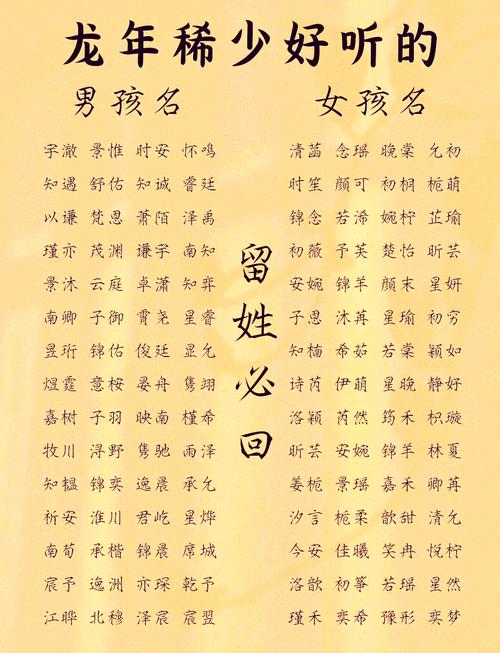 龙年稀少好听的
男孩名
宇澈 景惟 时安 怀鸣
知遇 舒佑 知诚 睿廷
以谦 梵恩 萧陌 泽禹
瑾亦 茂渊 谦宇 南知
景沐 云庭 卓萧 知弈
南卿 子御 霄尧 星睿
昱珩 锦佑 俊廷 显允
煜霆 意桉 晏舟 隽翊
嘉树 子羽 映南 槿希
牧川 浔野 隽驰 雨泽
知韫 锦奕 逸晨 承允
祈安 淮川 君屹 星烨
南荀 承楷 锦晨 席城
宸予 逸洲 亦琛 乾予
江晔 北穆 泽宸 宸翌
留姓必回
女孩名
清菡 念瑶 晚棠 允初
时笙 颜可 初桐 栀萌
锦念 若浠 婉柠 芷瑜
初薇 予芙 楚怡 昕芸
安婉 锦羊 颜末 星妍
子思 沐苒 星瑜 初穷
知楠 希茹 若棠 颖如
诗芮 伊萌 星晚 静好
洛颖 芮然 筠禾 枳璇
昕芸 安婉 锦羊 林夏
姜栀 景瑶 嘉禾 卿苒
汐言 栀柔 歆甜 清允
今安 佳曦 笑冉 悦柠
洛歆 初筝 若瑶 星然
瑾禾 奕希 豫形 奕梦